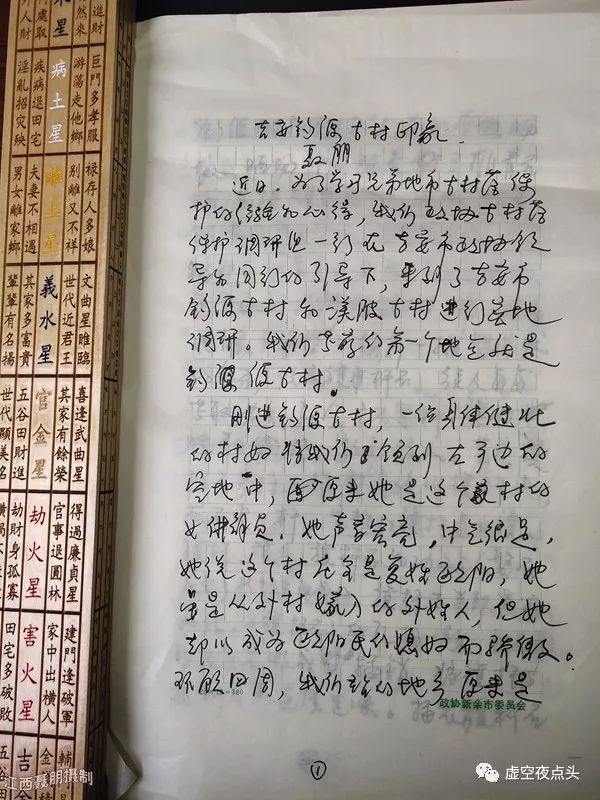 進財
然來
星
處取
人財
巨門多孝服
游蕩走他鄉
病土星
疾病退田宅
淫亂招災殃
祿存人多娘
別離又不祥
離土星
夫妻不相遇
男女離家鄉
文曲星睢臨
世代近君王
義水星
其家多富貴
輩輩有名揚
喜逢武曲星
其家有餘榮
官金星
五谷田財進
世代顯美名
得過廉貞星
官事退園林
劫火星
劫財身孤寡
建門逢破軍
家中出橫人
害火星
田宅多破敗
輔
吉金
五谷
吉安钓源古村印象
聂朋
近日，为了学习兄弟地市古村落保
护的经验和心得，我们政协古村落
保护调研组一行在吉安市政协领
导和同行的引导下，来到了吉安市
钓源古村和渼陂古村进行实地
调研。我们考察的第一个地点就是
钓源古村。
刚进钓源古村，一位身体健壮
的村妇将我们领到左手边的
空地中，原来她是这个村的
女讲解员。她声音宏亮，中气很足，
她说这个村庄全是复姓欧阳，她
虽是从外村嫁入的外姓人，但她
却以成为欧阳氏的媳妇而骄傲。
环顾四周，我们站的地方原来是
政协新余市委员会
①
江西聂朋摄制
虚空夜点头